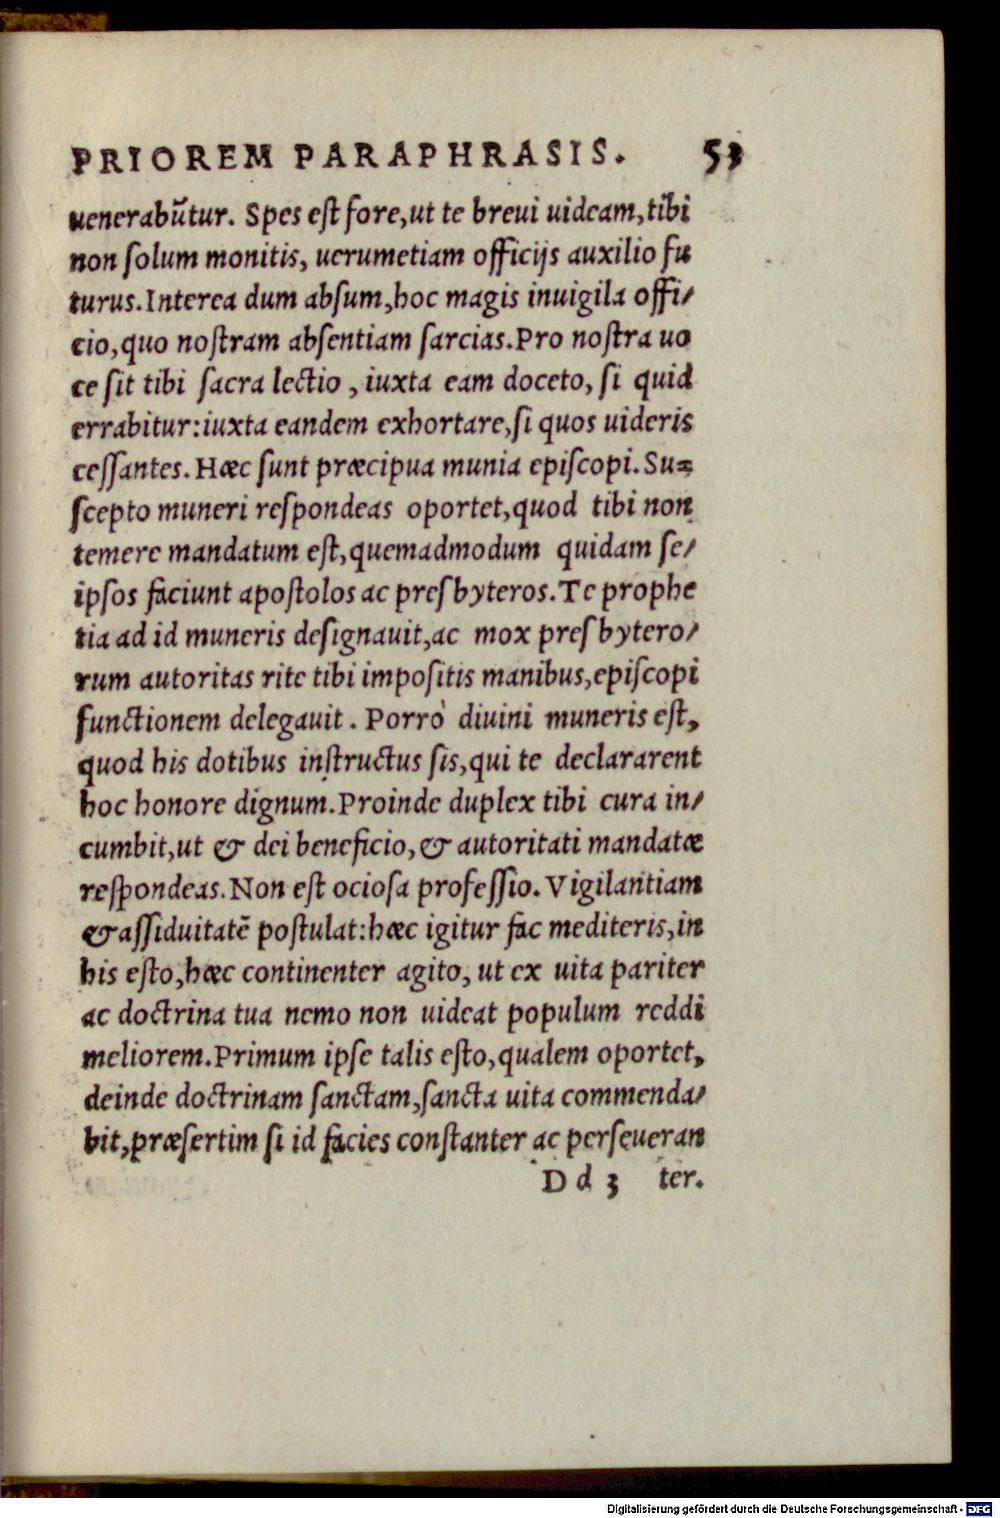 PRIOREM PARAPHRASIS. 53
uenerabũtur. Spes eſt fore,ut te breui uideam,tibi
non ſolum monitis, uerumetiam officijs auxilio fu
turus.Interea dum abſum,hoc magis inuigila offi/
cio,quo noſtram abſentiam ſarcias.Pro noſtra uo
ce ſit tibi ſacra lectio , iuxta eam doceto, ſi quid
errabitur:iuxta eandem exhortare,ſi quos uideris
ceſſantes.Hæc ſunt præcipua munia epiſcopi.Su=
ſcepto muneri reſpondeas oportet,quod tibi non
temere mandatum eſt,quemadmodum quidam ſe/
ipſos faciunt apoſtolos ac preſbyteros.Te prophe
tia ad id muneris deſignauit,ac mox preſbytero/
rum autoritas rite tibi impoſitis manibus,epiſcopi
functionem delegauit. Porrò diuini muneris eſt,
quod his dotibus inſtructus ſis,qui te declararent
hoc honore dignum.Proinde duplex tibi cura in/
cumbit,ut & dei beneficio,& autoritati mandatæ
reſpondeas.Non eſt ocioſa profeſſio.Vigilantiam
& aſſiduitatẽ poſtulat:hæc igitur fac mediteris,in
his eſto,hæc continenter agito, ut ex uita pariter
ac doctrina tua nemo non uideat populum reddi
meliorem.Primum ipſe talis eſto,qualem oportet,
deinde doctrinam ſanctam,ſancta uita commenda/
bit,præſertim ſi id facies conſtanter ac perſeueran
D d 3 ter.
Digitalisierung gefördert durch die Deutsche Forschungsgemeinschaft - DFG